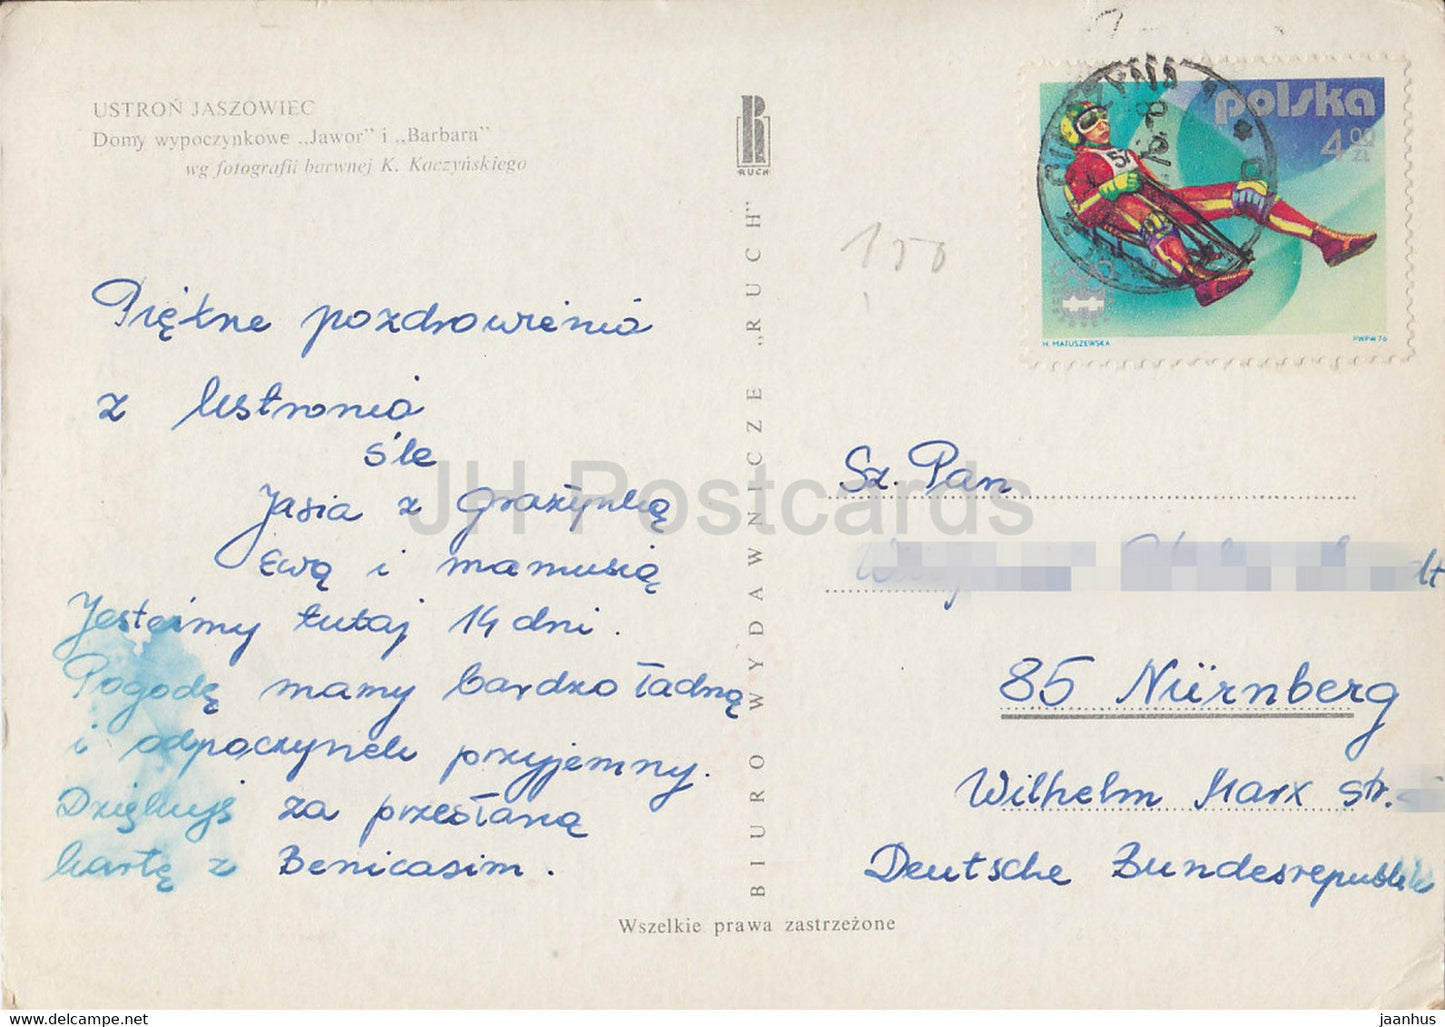 USTROŃ JASZOWIEC
Domy wypoczynkowe „Jawor" i „Barbara"
wg fotografii barwnej K. Kaczyńskiego
RUCH
polska
4.00
ZŁ
57
H. MATUSZEWSKA
PWPW 76
150
Piękne pozdrowienia
z Ustronia
śle
Jasia z Grażynką
Ewą i mamusią
Jesteśmy tutaj 14 dni.
Pogodę mamy bardzo ładną
i odpoczynek przyjemny.
Dziękuję za przesłaną
kartę z Benicasim.
BIURO WYDAWNICZE „RUCH"
Sz. Pan
dt
85 Nürnberg
Wilhelm Marx str.
Deutsche Bundesrepublik
Wszelkie prawa zastrzeżone
JH Postcards
www.delcampe.net
jaanhus